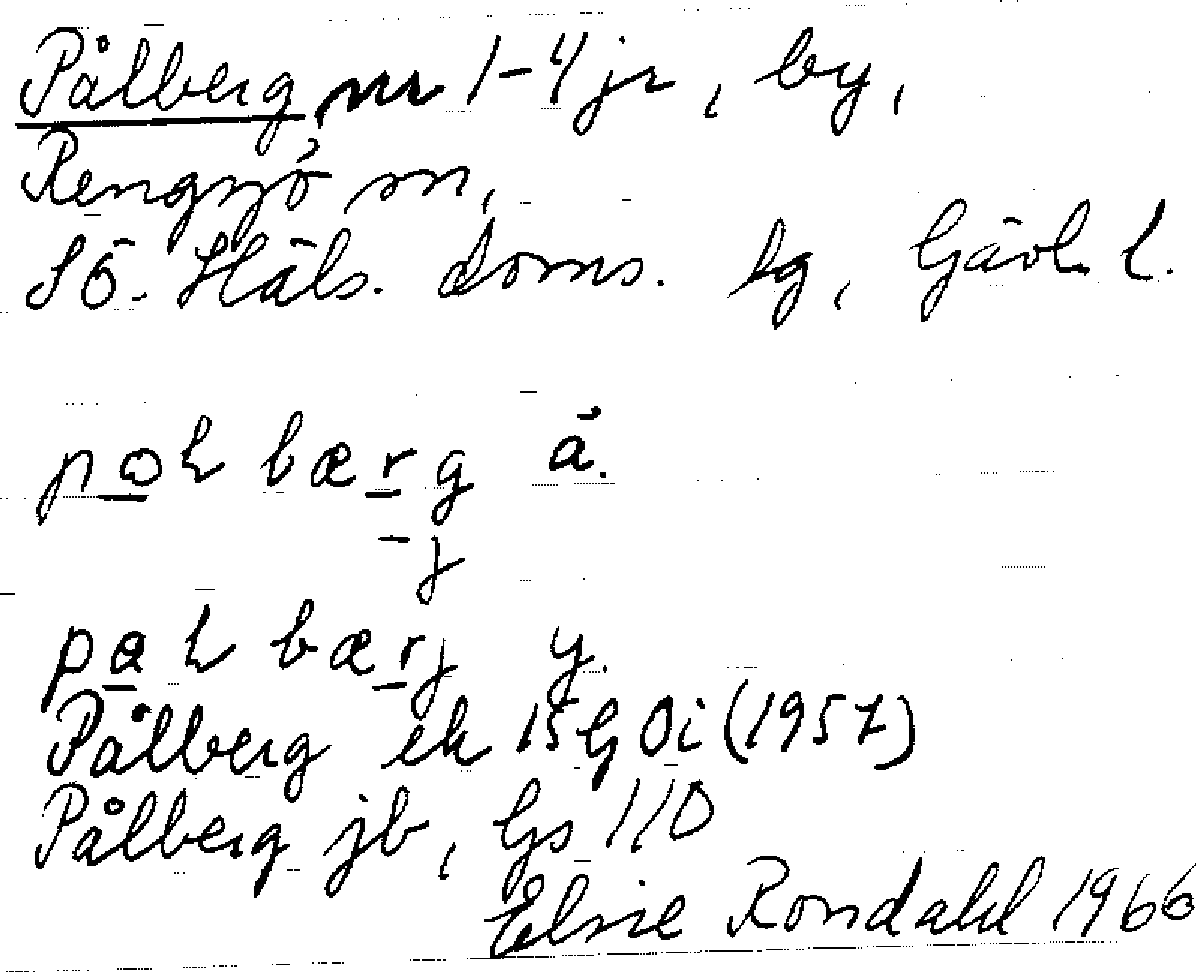 Pålberg, nr 1-4 jr, by,
Rengsjö sn,
SÖ. Häls. doms. tg, Gävl. l.
bærg ä.
j
bærj y.
Pålberg ek 15G 0i (1957)
Pålberg jb, Gs 110
Elsie Rondahl 1966